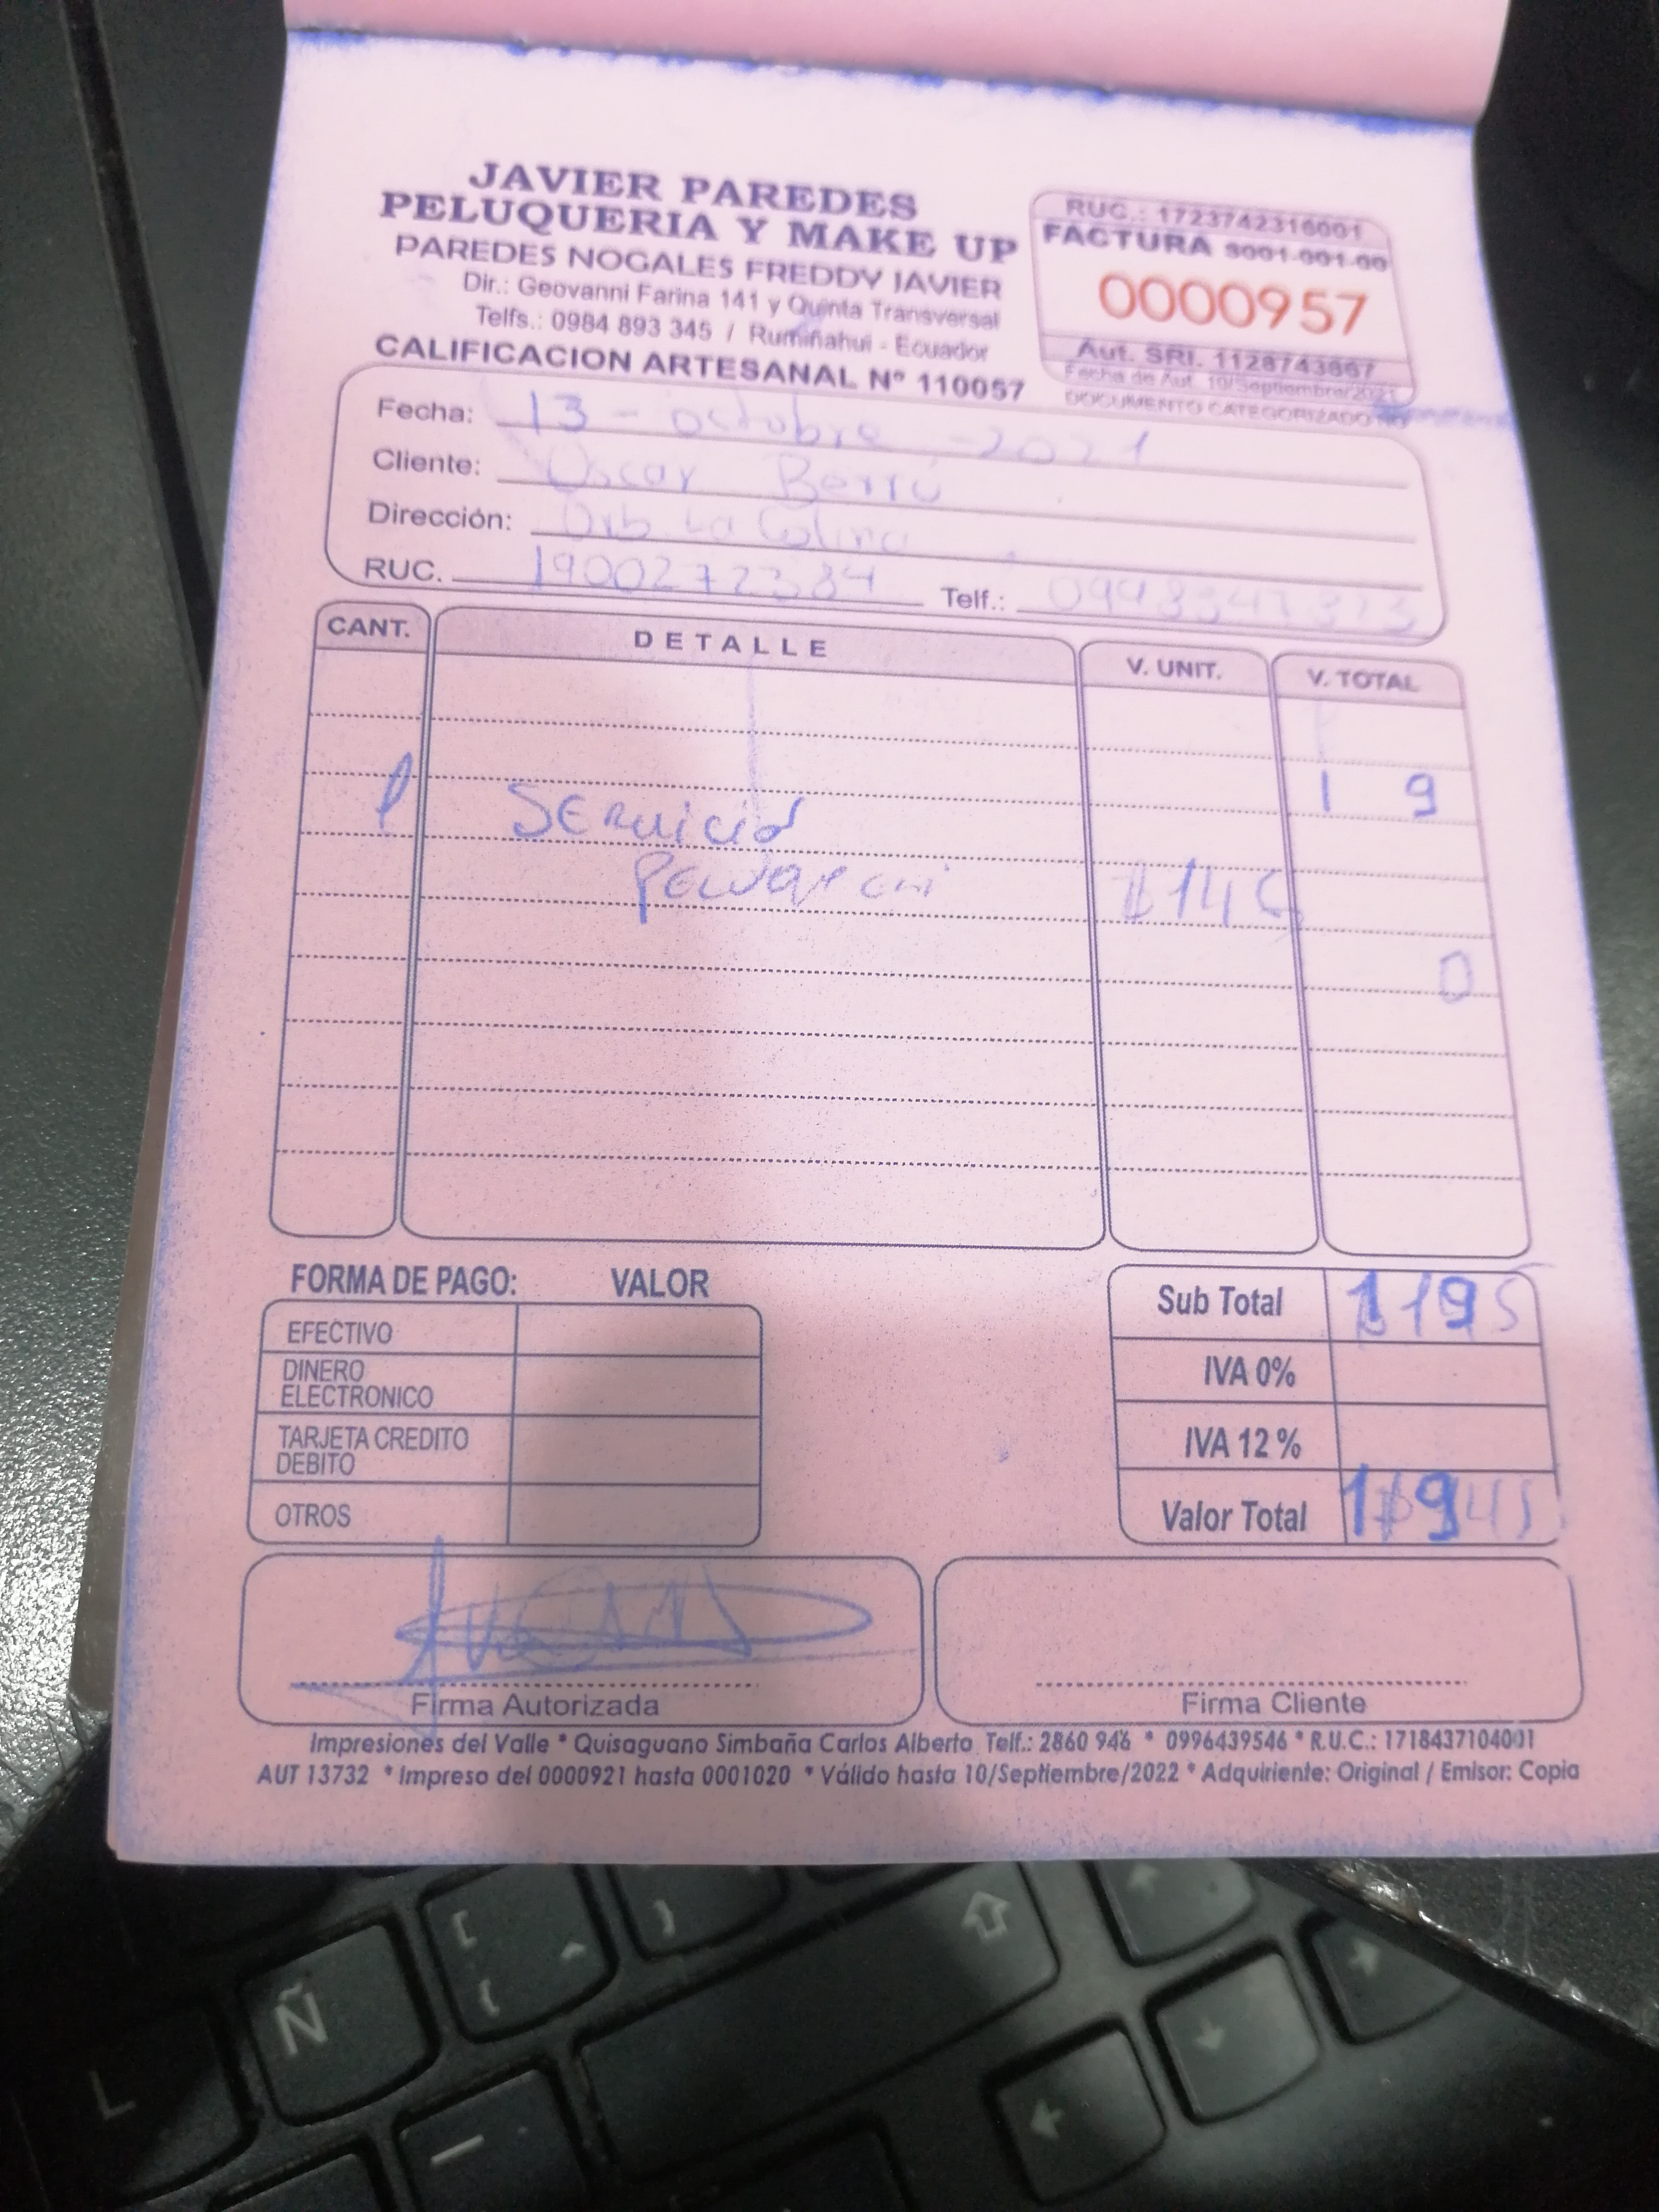 JAVIER PAREDES
PELUQUERIA Y MAKE UP
PAREDES NOGALES FREDDY JAVIER
Dir.: Geovanni Farina 141 y Quinta Transversal
Telfs.: 0984 893 345 / Rumiñahui - Ecuador
CALIFICACION ARTESANAL Nº 110057
RUC.: 1723742316001
FACTURA S001-001-00
0000957
Aut. SRI. 1128743667
Fecha de Aut. 10/Septiembre/2021
DOCUMENTO CATEGORIZADO: NO
Fecha: 13 - octubre - 2021
Cliente: Oscar Berrú
Dirección: Urb. La Colina
RUC. 1900272384 Telf.:
CANT. DETALLE V. UNIT. V. TOTAL
1 Servicio 1 9
0
FORMA DE PAGO: VALOR
EFECTIVO
DINERO ELECTRONICO
TARJETA CREDITO
DEBITO
OTROS
Sub Total
IVA 0%
IVA 12 %
Valor Total
Firma Autorizada
Firma Cliente
Impresiones del Valle * Quisaguano Simbaña Carlos Alberto Telf.: 2860 946 * 0996439546 * R.U.C.: 1718437104001
AUT 13732 * Impreso del 0000921 hasta 0001020 * Válido hasta 10/Septiembre/2022 * Adquiriente: Original / Emisor: Copia
[
{
^
}
Ñ
L
-